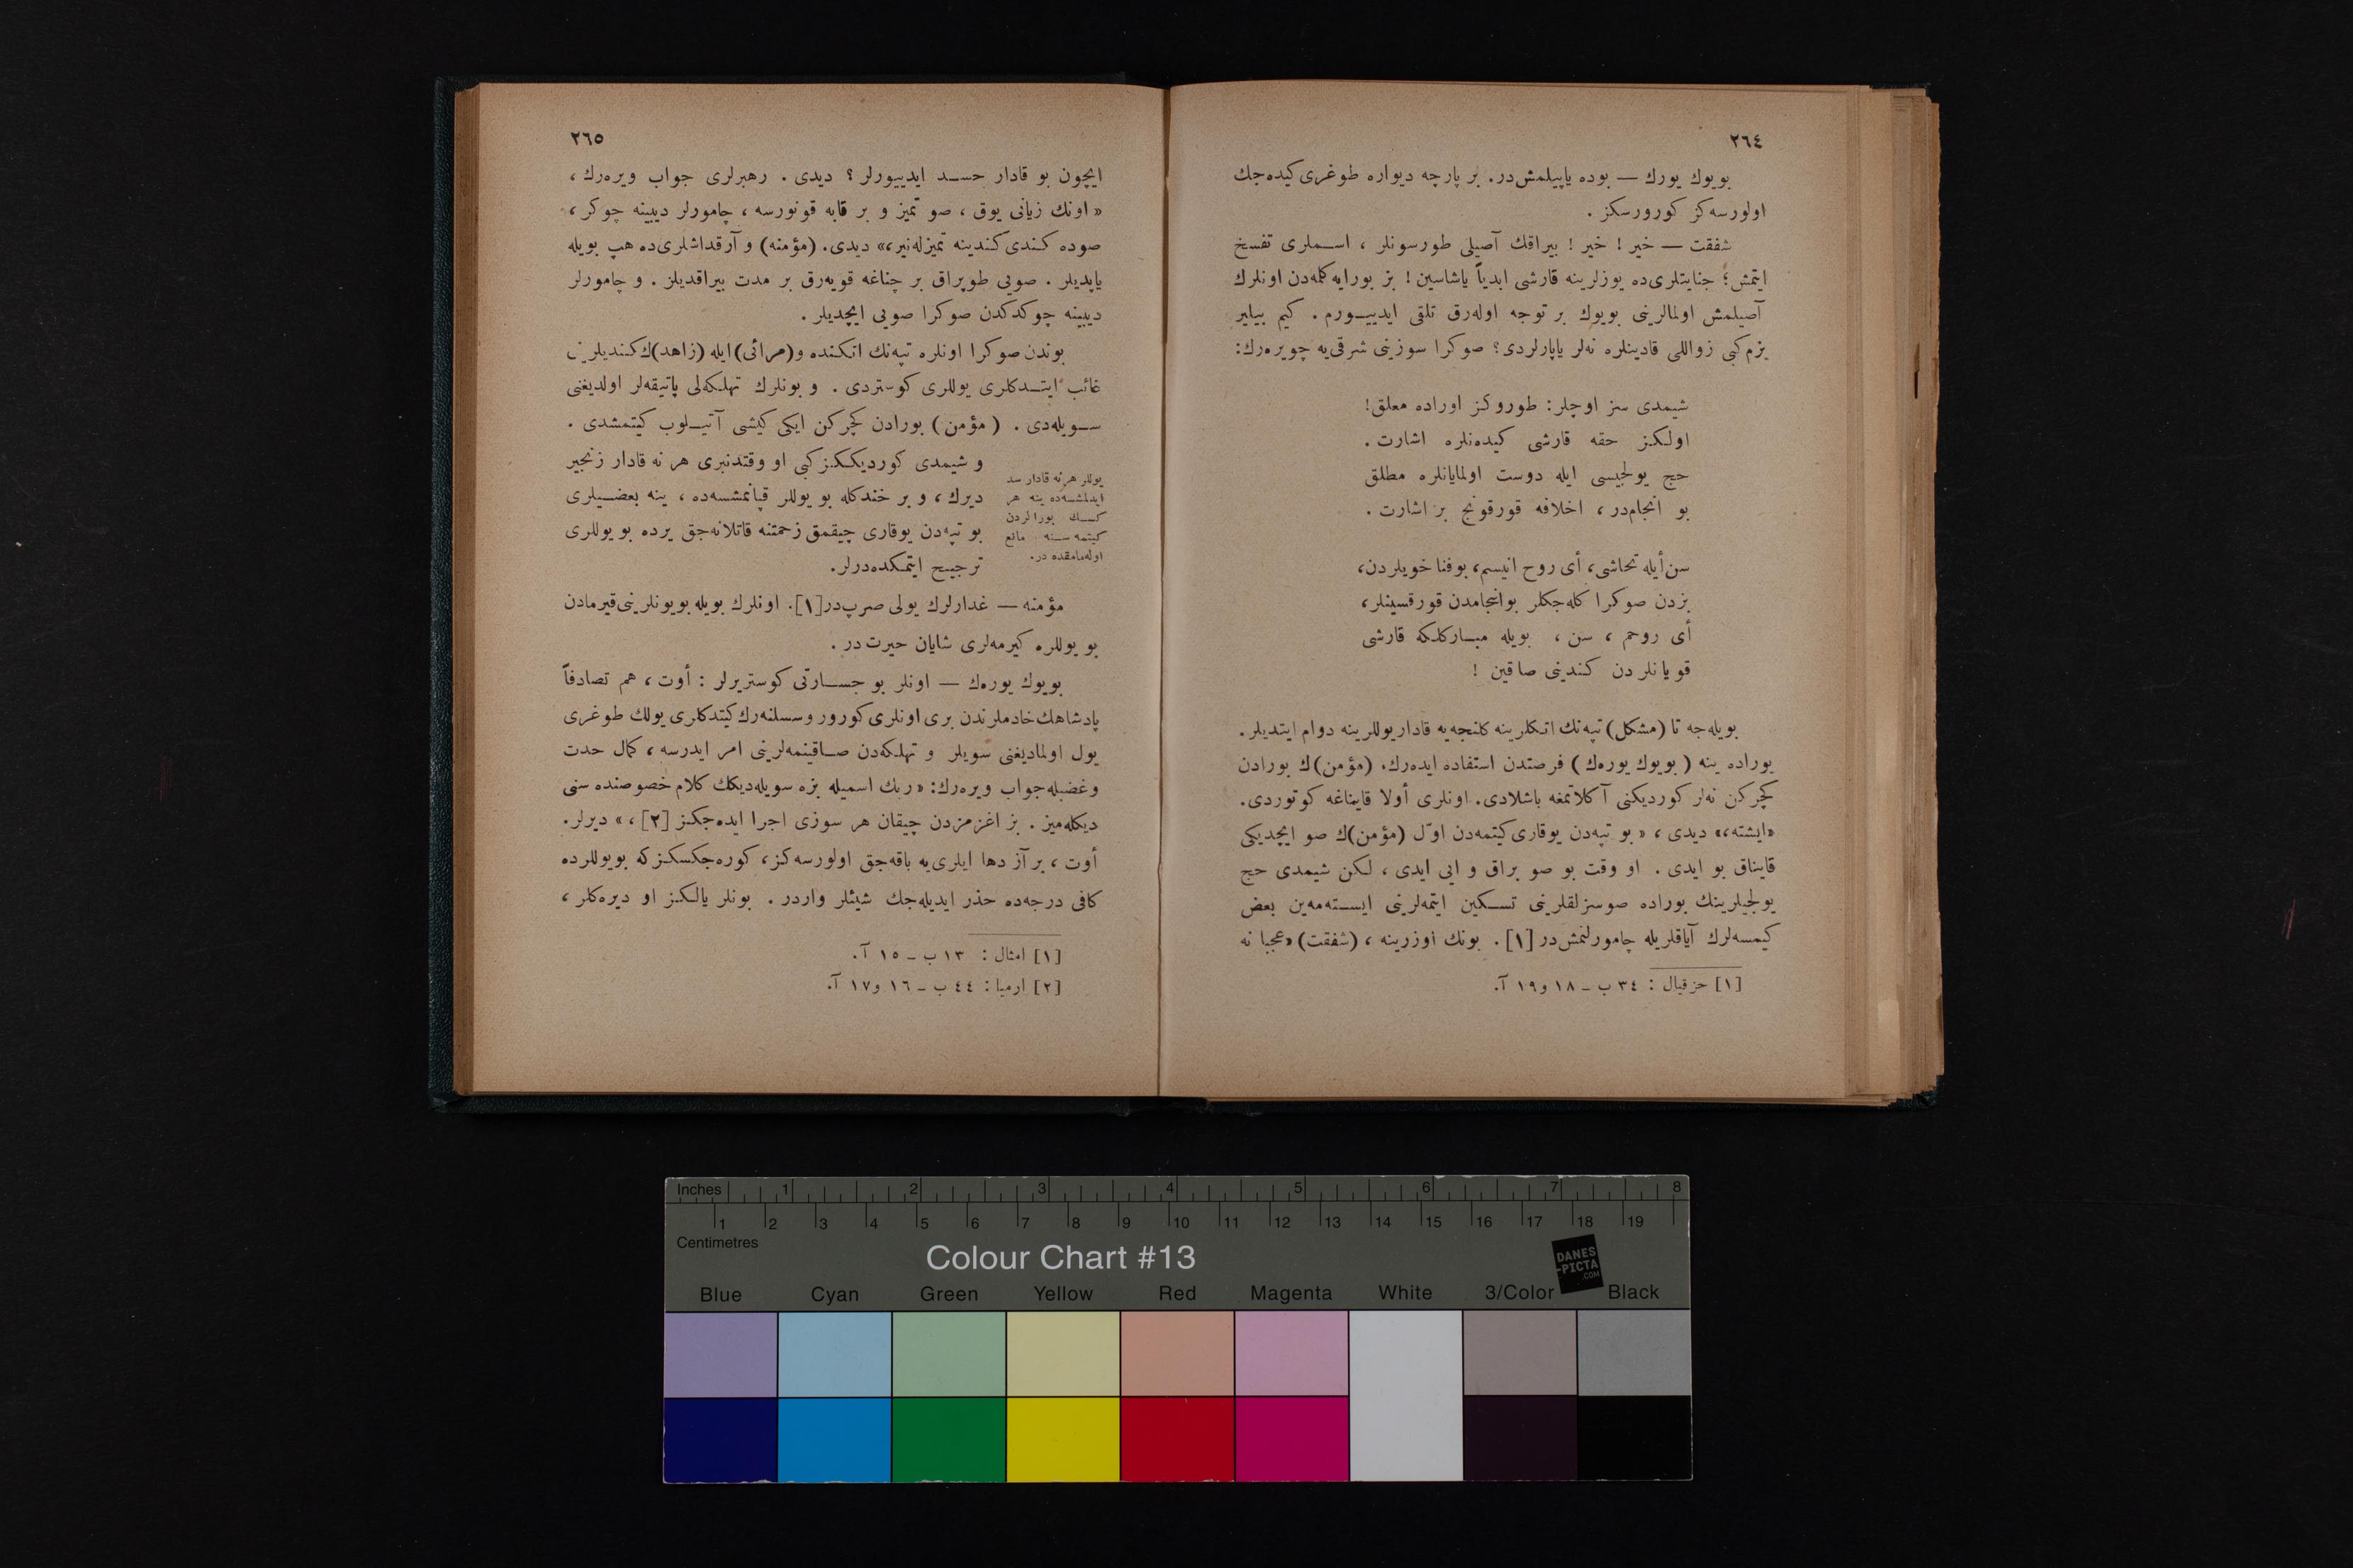 ٢٦٤
بويوك يورك — بوده ياپيلمش‌در. بر پارچه ديواره طوغرى كيده‌جك
اولورسه‌كز كورورسكز .
شفقت — خير ! خير ! بيراقك آصيلى طورسونلر ، اسملرى تفسخ
ايتمش؛ جنايتلرى‌ده يوزلرينه قارشى ابدياً ياشاسين ! بز بورايه كلمه‌دن اونلرك
آصيلمش اولمالرينى بويوك بر توجه اوله‌رق تلقى ايدييورم . كيم بيلير
بزم كبى زواللى قادينلره نه‌لر ياپارلردى؟ صوكرا سوزينى شرقى‌يه چويره‌رك:
شيمدى سز اوچلر: طوروكز اوراده معلق!
اولكز حقه قارشى كيده‌نلره اشارت .
حج يولجيسى ايله دوست اولمايانلره مطلق
بو انجام‌در ، اخلافه قورقونج بر اشارت .
سن أيله تحاشى، أى روح انيسم، بو فنا خويلردن،
بزدن صوكرا كله‌جكلر بو انجامدن قورقسينلر،
أى روحم ، سن ، بويله مباركلكه قارشى
قويانلردن كندينى صاقين !
بويله‌جه تا (مشكل) تپه‌نك اتكلرينه كلنجه‌يه قادار يوللرينه دوام ايتديلر.
بوراده ينه ( بويوك يوره‌ك ) فرصتدن استفاده ايده‌رك، (مؤمن)ك بورادن
كچركن نه‌لر كورديكنى آكلاتمغه باشلادى. اونلرى أولا قايناغه كوتوردى.
«ايشته،» ديدى ، « بو تپه‌دن يوقارى كيتمه‌دن اوّل (مؤمن)ك صو ايچديكى
قايناق بو ايدى . او وقت بو صو براق و ايى ايدى ، لكن شيمدى حج
يولجيلرينك بوراده صوسزلقلرينى تسكين ايتمه‌لرينى ايسته‌مه‌ين بعض
كيمسه‌لرك آياقلريله چامورلنمش‌در [١] . بونك اوزرينه ، (شفقت) «عجبا نه
[١] حزقيال : ٣٤ ب ـ ١٨ و١٩ آ.
٢٦٥
ايچون بو قادار حسد ايدييورلر ؟ ديدى . رهبرلرى جواب ويره‌رك ،
« اونك زيانى يوق ، صو تميز و بر قابه قونورسه ، چامورلر ديبينه چوكر ،
صوده كندى كندينه تميزله‌نير،» ديدى. (مؤمنه) و آرقداشلرى‌ده هپ بويله
ياپديلر . صويى طوپراق بر چناغه قويه‌رق بر مدت بيراقديلر . و چامورلر
ديبينه چوكدكدن صوكرا صويى ايچديلر .
بوندن صوكرا اونلره تپه‌نك اتكنده و(مرائى) ايله (زاهد)ك كنديلرينى
غائب ايتدكلرى يوللرى كوستردى . و بونلرك تهلكه‌لى پاتيقه‌لر اولديغنى
سويله‌دى . ( مؤمن) بورادن كچركن ايكى كيشى آتيلوب كيتمشدى .
و شيمدى كورديككز كبى او وقتدنبرى هر نه قادار زنجير
ديرك ، و بر خندكله بو يوللر قپانمشسه‌ده ، ينه بعضيلرى
بو تپه‌دن يوقارى چيقمق زحمتنه قاتلانه‌جق يرده بو يوللرى
ترجيح ايتمكده‌درلر.
يوللر هر نه قادار سد
ايدلمشسه‌ده ينه هر
كسك بورالردن
كيتمه سنه مانع
اوله‌مامقده در.
مؤمنه — غدارلرك يولى صرپ‌در[١]. اونلرك بويله بويونلرينى قيرمادن
بو يوللره كيرمه‌لرى شايان حيرت‌در .
بويوك يوره‌ك — اونلر بو جسارتى كوستريرلر : أوت ، هم تصادفاً
پادشاهك خادملرندن برى اونلرى كورور و سسلنه‌رك كيتدكلرى يولك طوغرى
يول اولماديغنى سويلر و تهلكه‌دن صاقينمه‌لرينى امر ايدرسه ، كمال حدت
وغضبله جواب ويره‌رك: «ربك اسميله بزه سويله‌ديكك كلام خصوصنده سنى
ديكله‌ميز . بز اغزمزدن چيقان هر سوزى اجرا ايده‌جكز [٢] ، » ديرلر.
أوت ، بر آز دها ايلرى‌يه باقه‌جق اولورسه‌كز، كوره‌جكسكز كه بو يوللرده
كافى درجه‌ده حذر ايديله‌جك شيئلر واردر . بونلر يالكز او ديره‌كلر ،
[١] امثال : ١٣ ب ـ ١٥ آ.
[٢] ارميا : ٤٤ ب ـ ١٦ و١٧ آ.
Inches 1 2 3 4 5 6 7 8
1 2 3 4 5 6 7 8 9 10 11 12 13 14 15 16 17 18 19
Centimetres
Colour Chart #13
DANES
-PICTA
.COM
Blue Cyan Green Yellow Red Magenta White 3/Color Black